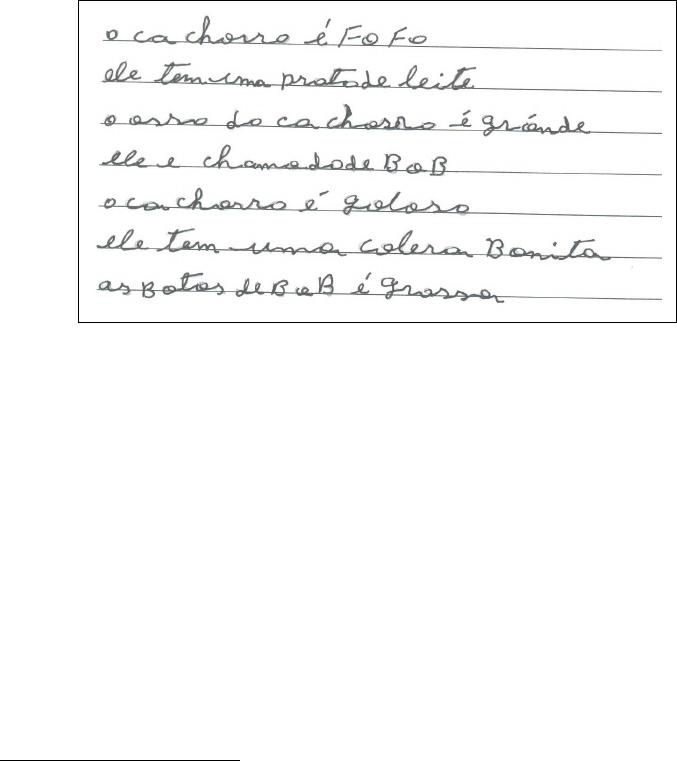 o ca chorro é FoFo
ele tem uma prato de leite
o osso do ca chorro é gránde
ele e chamado de BoB
o cachorro é guloso
ele tem uma colera Bonita
as Botas de BoB é grossa